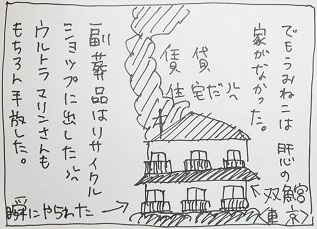 でもうみねこは 肝心の
家がなかった。
賃貸
住宅だし、
副葬品はリサイクル
ショップに出したし、
ウルトラマリンさんも
もちろん手放した。
←双魚宮
瞬にやられた→